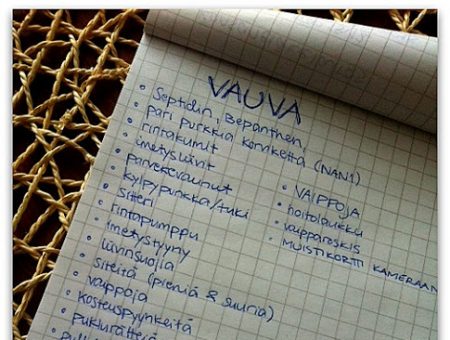 VAUVA
• Septidin, Bepanthen,
• pari purkkia korviketta (NAN1)
• rintakumit
• imetysliivit
• parvekevaunut
• kylpypunkka/tuki
• Sitteri
• rintapumppu
• imetystyyny
• liivinsuojia
• siteitä (pieniä & suuria)
• vaippoja
• kosteuspyyhkeitä
• puklurättejä
• VAIPPOJA
• hoitolaukku
• vaipparoskis
• MUISTIKORTTI KAMERAAN